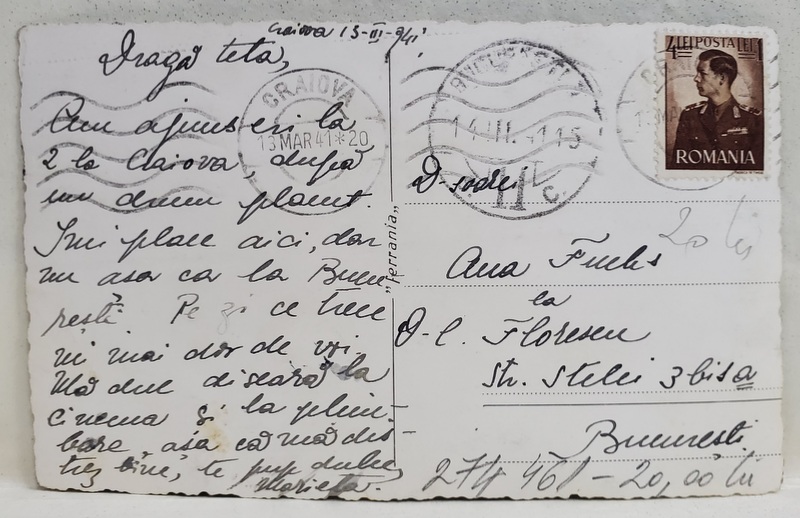 Craiova 13-III-941
Dragă teta,
Am ajuns eri la
2 la Craiova, după
un drum placut.
Imi place aici, dar
nu asa ca la Bucu-
rești. Pe zi ce trece
mi mai dor de voi.
Mă duc diseară la
cinema și la plim-
bare, asa că mă dis-
trez bine, te pup dulce,
Marieta.
CRAIOVA
13 MAR 41 * 20
"Ferrania"
BUCUREȘTI
14 III. 41 15
C.
4 LEI POSTA LEI 1
ROMANIA
D-șoarei
20 lei
Ana Fuchs
la
D-l. Florescu
Str. Stelei 3 bis a
București
274 461 - 20,00 lei